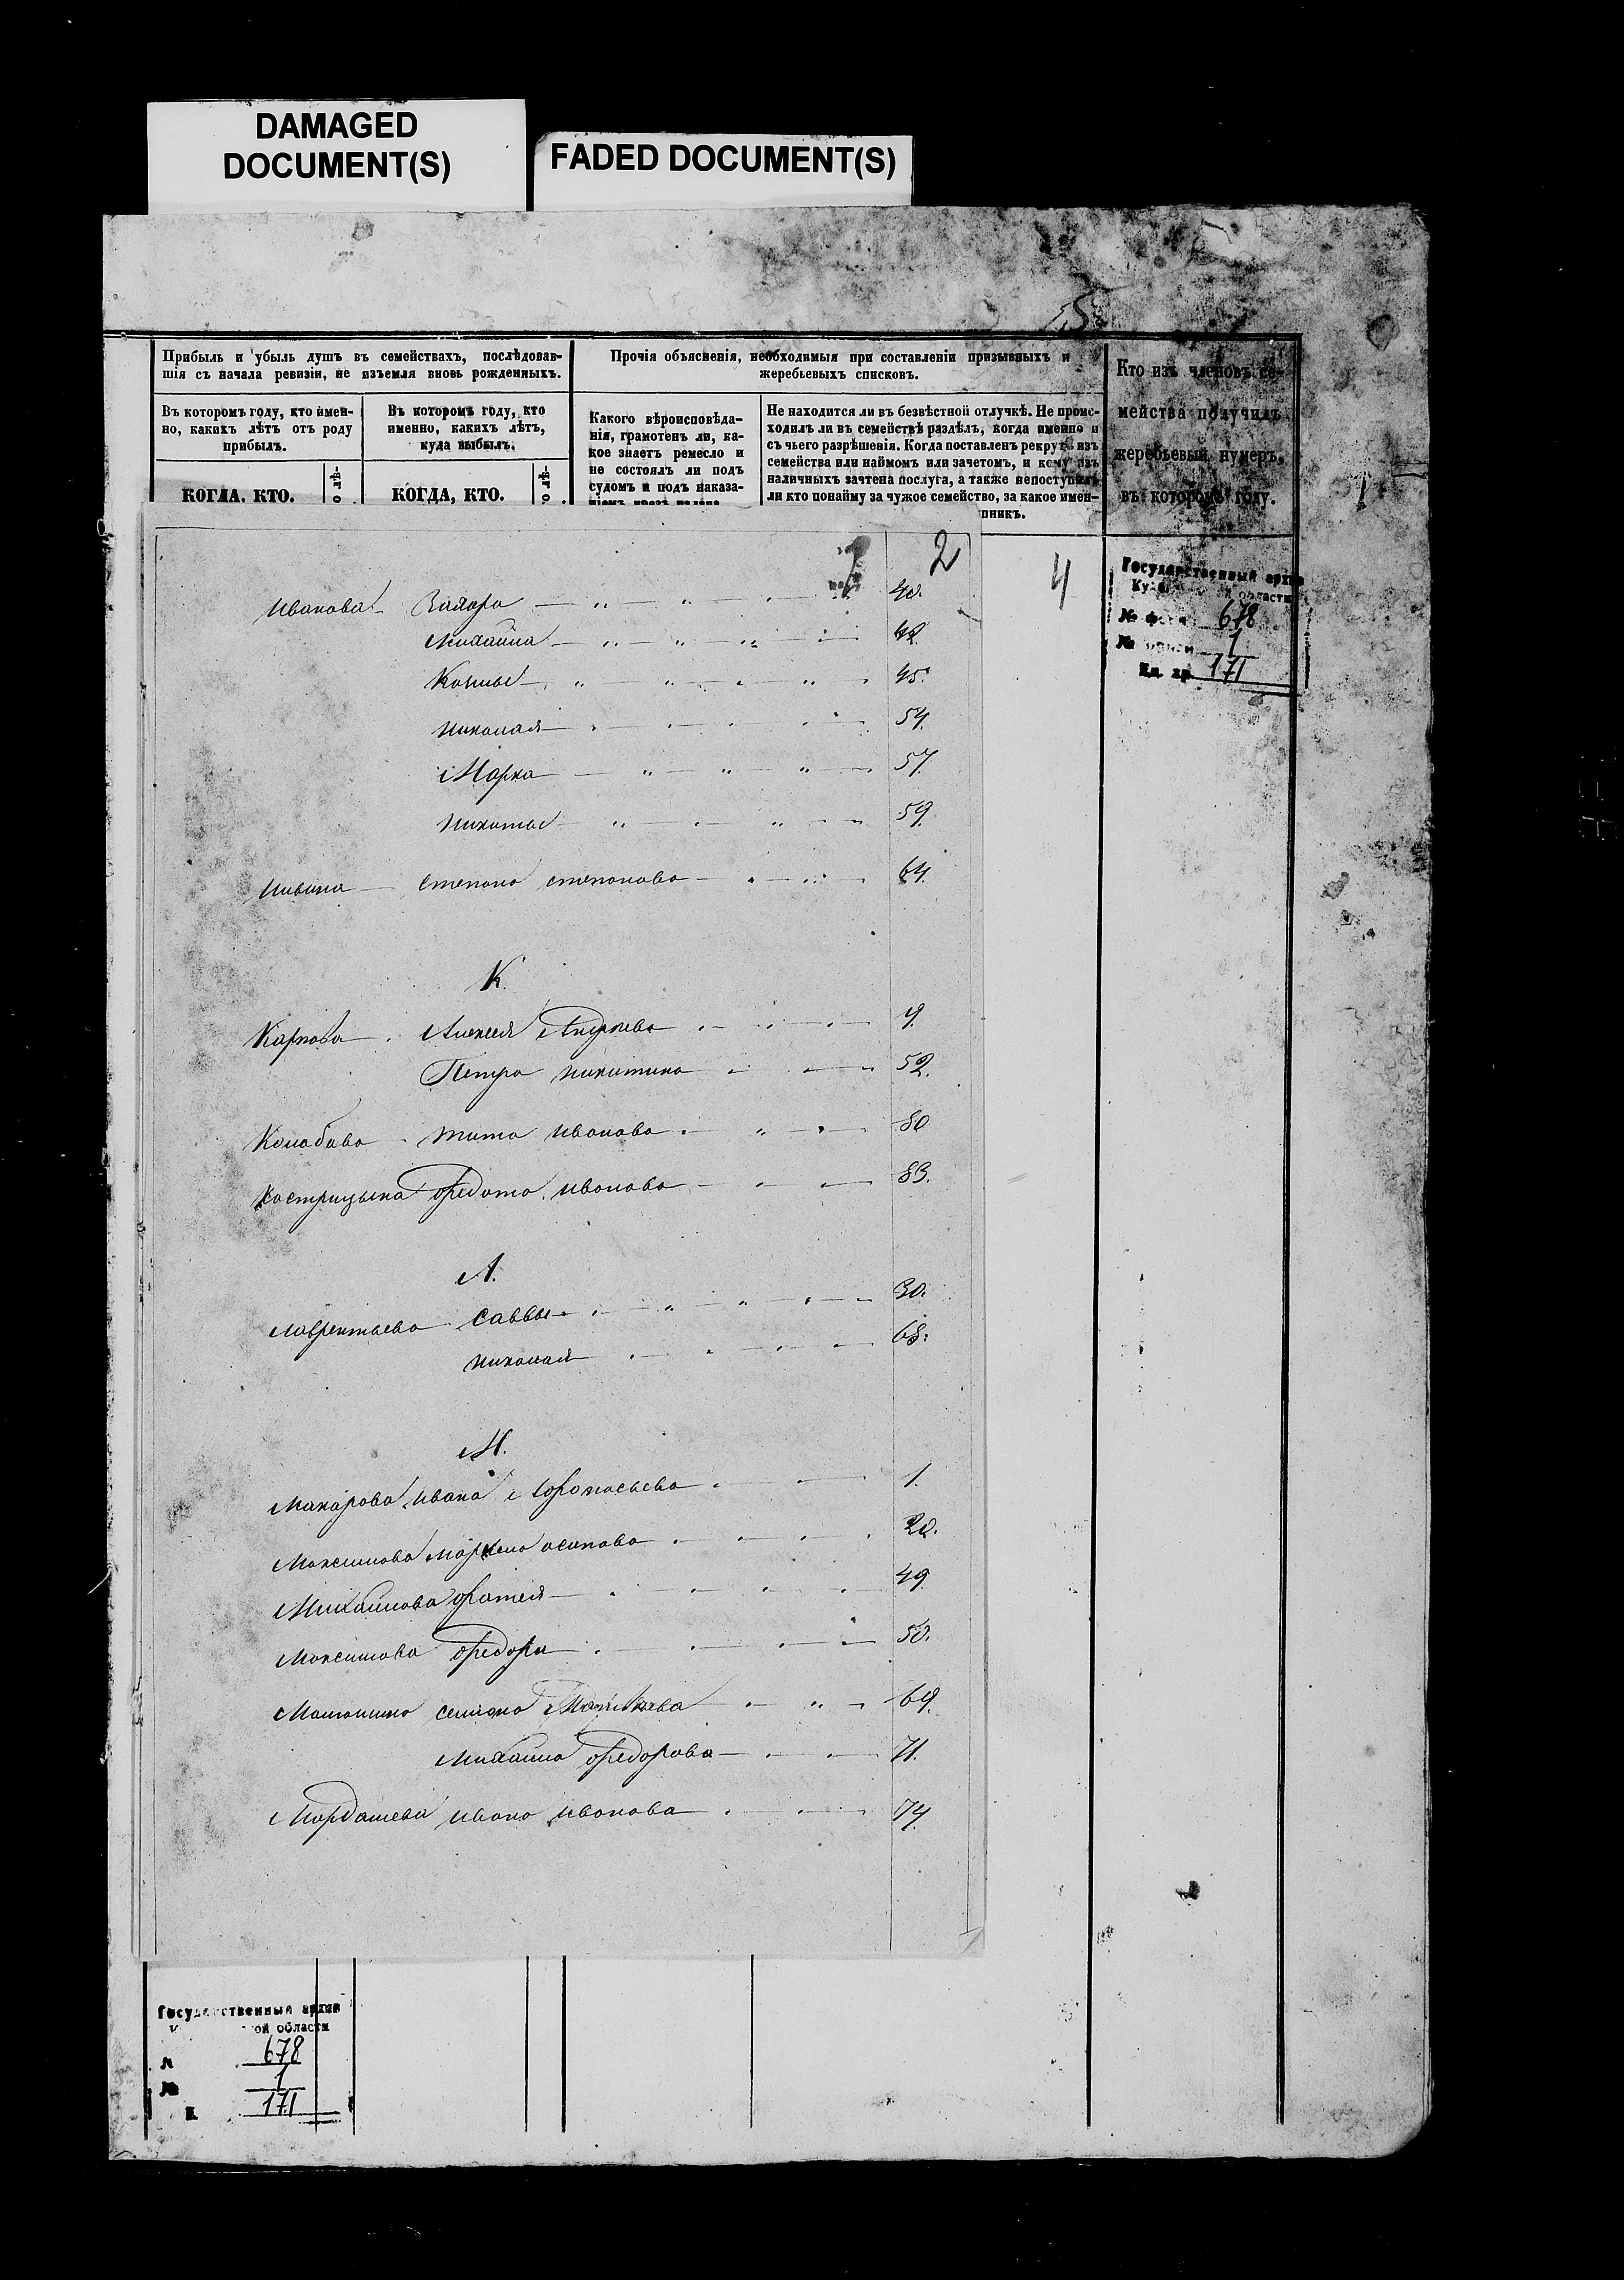 DAMAGED
DOCUMENT(S)
FADED DOCUMENT(S)
Прибыль и убыль душъ въ семействахъ, послѣдовав-
шія съ начала ревизіи, не изъемля вновь рожденныхъ.
Прочія объясненія, необходимыя при составленіи призывныхъ и
жеребьевыхъ списковъ.
Кто изъ членовъ се-
мейства получилъ
жеребьевый нумеръ,
въ которомъ году.
Въ которомъ году, кто имен-
но, какихъ лѣтъ отъ роду
прибылъ.
Въ которомъ году, кто
именно, какихъ лѣтъ,
куда выбылъ.
Какого вѣроисповѣда-
нія, грамотенъ ли, ка-
кое знаетъ ремесло и
не состоялъ ли подъ
судомъ и подъ наказа-
Не находится ли въ безвѣстной отлучкѣ. Не проис-
ходилъ ли въ семействѣ раздѣлъ, когда именно и
съ чьего разрѣшенія. Когда поставленъ рекрутъ изъ
семейства или наймомъ или зачетомъ, и кому изъ
наличныхъ зачтена послуга, а также непоступилъ
ли кто понайму за чужое семейство, за какое имен-
пникъ.
КОГДА, КТО.
КОГДА, КТО.
2
4
Иванова Захара 40.
Михаила 42.
Козмы 45.
Николая 54.
Марка 57.
Никиты 59.
Ильина Степана Степанова 64.
К.
Карпова Алексея Андреева 9.
Петра Никитина 52.
Колобова Тита Иванова 80
Кострицына Федота Иванова 83.
Л.
Лаврентьева Саввы 30.
Николая 68.
М.
Макарова Ивана Афонасьева 1.
Максимова Осипова 20.
Михайлова Фатея 49.
Максимова Федора 50.
Матюшина Семиона Матвеева 69.
Михаила Федорова 71.
Мордашева Ивана Иванова 74.
Государственный архив
области
№ фонда 678
№ описи 1
Ед. хр. 171
Государственный архив
ой области
678
№ 1
171